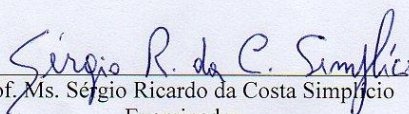 Sérgio R. da C. Simplício
of. Ms. Sérgio Ricardo da Costa Simplício
Examinador